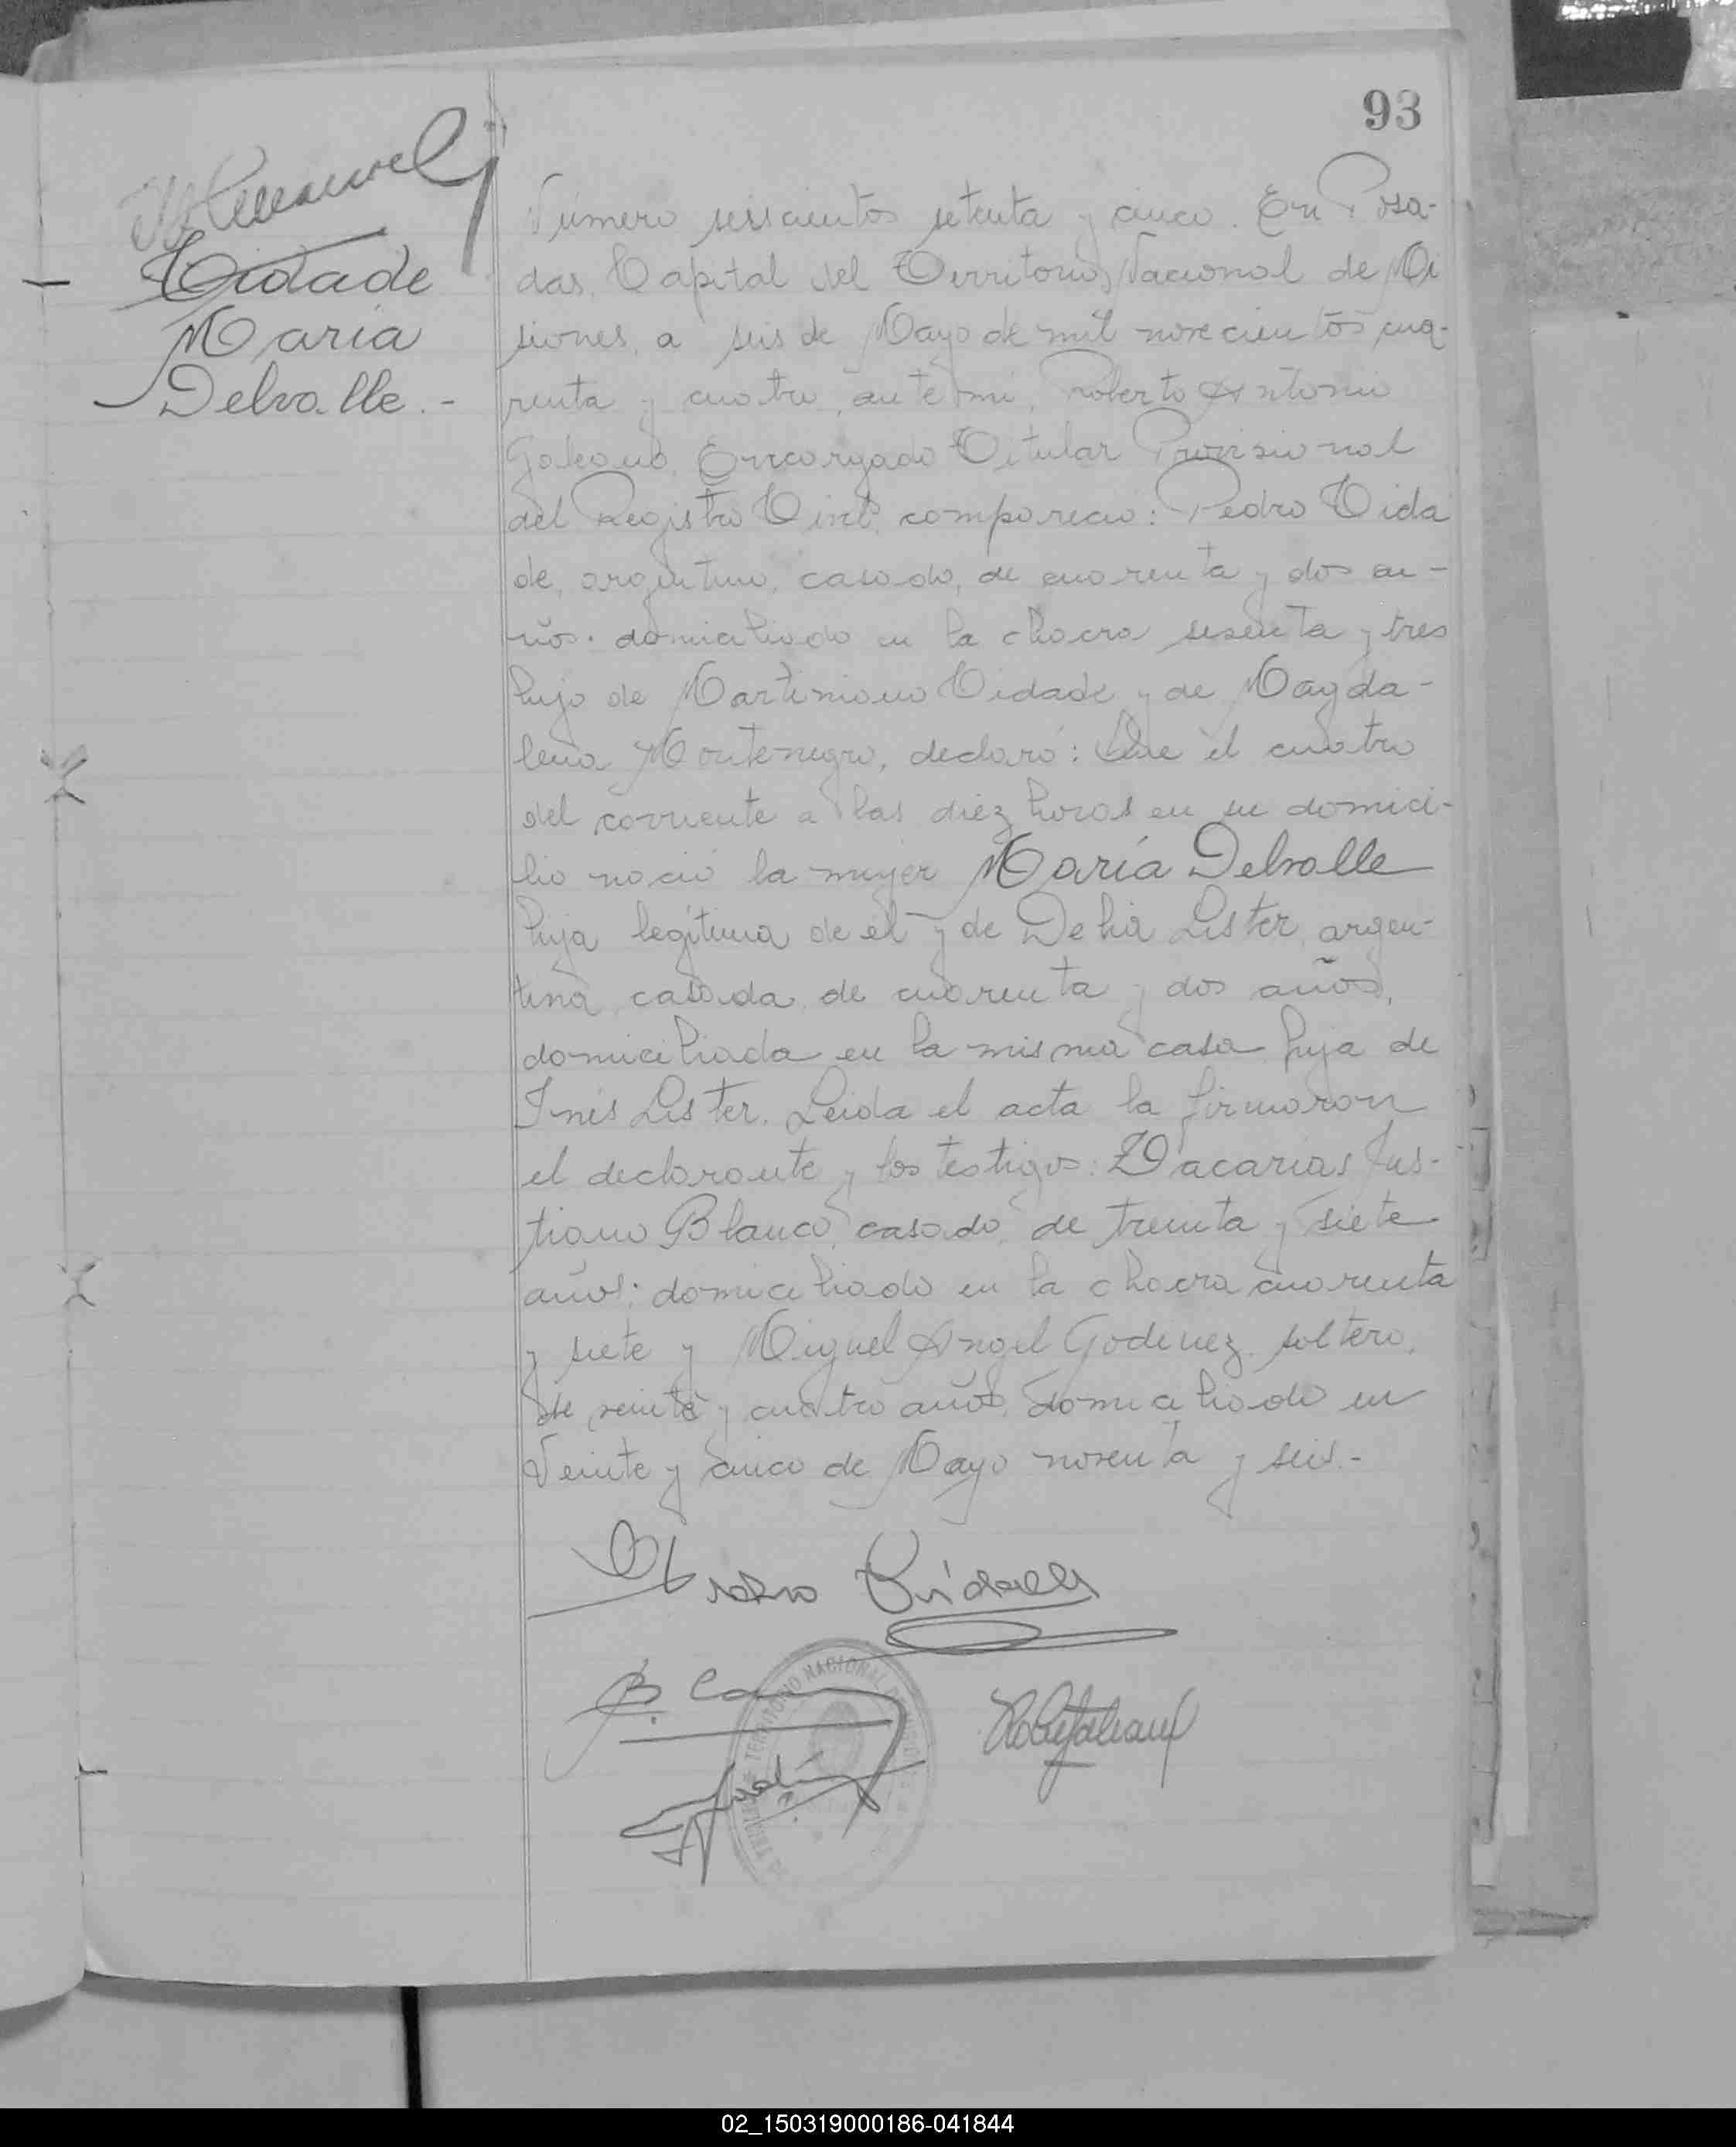 93
Vidade
María
Delvalle.-
Número seiscientos setenta y cinco. En Posa-
das, Capital del Territorio Nacional de Mi
siones, a seis de Mayo de mil novecientos cua-
renta y cuatro, ante mi, Roberto Antonio
Galeano, Encargado Titular Provisional
del Registro Civil, compareció: Pedro Vida
de, argentino, casado, de cuarenta y dos a-
ños. domiciliado en la chacra sesenta y tres
hijo de Martiniano Vidade y de Magda-
lena Montenegro, declaró: Que el cuatro
del corriente a las diez horas en su domici-
lio nació la mujer María Delvalle
hija legítima de él y de Delia Lister, argen-
tina, casada, de cuarenta y dos años,
domiciliada en la misma casa hija de
Inés Lister. Leida el acta la firmaron
el declarante y los testigos: Zacarías Jus-
tiano Blanco, casado, de treinta y siete
años; domiciliado en la chacra cuarenta
y siete y Miguel Angel Godinez, soltero,
de veinte y cuatro años, domiciliado en
Veinte y cinco de Mayo noventa y seis.-
Pedro Vidade
TERRITORIO NACIONAL DE MISIONES
02_150319000186-041844